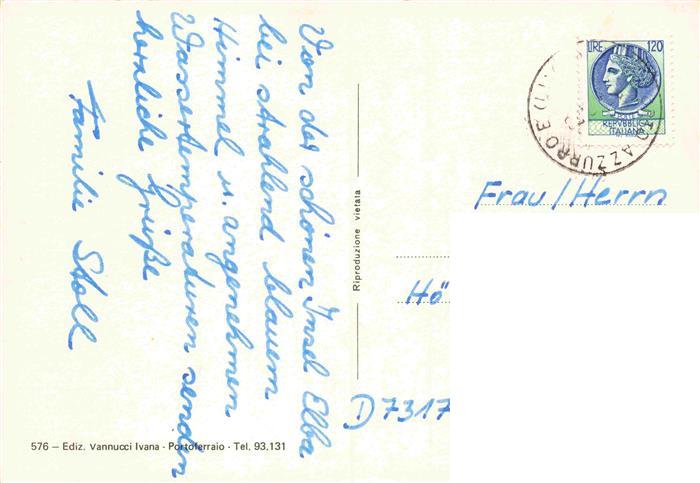 Von der schönen Insel Elba
bei strahlend blauem
Himmel u. angenehmen
Wassertemperaturen senden
herzliche Grüße
Familie Stoll
576 — Ediz. Vannucci Ivana - Portoferraio - Tel. 93,131
Riproduzione vietata
LIRE 120
POSTE
REPVBBLICA
ITALIANA
AZZURRO
Frau/Herrn
Hö
D7317